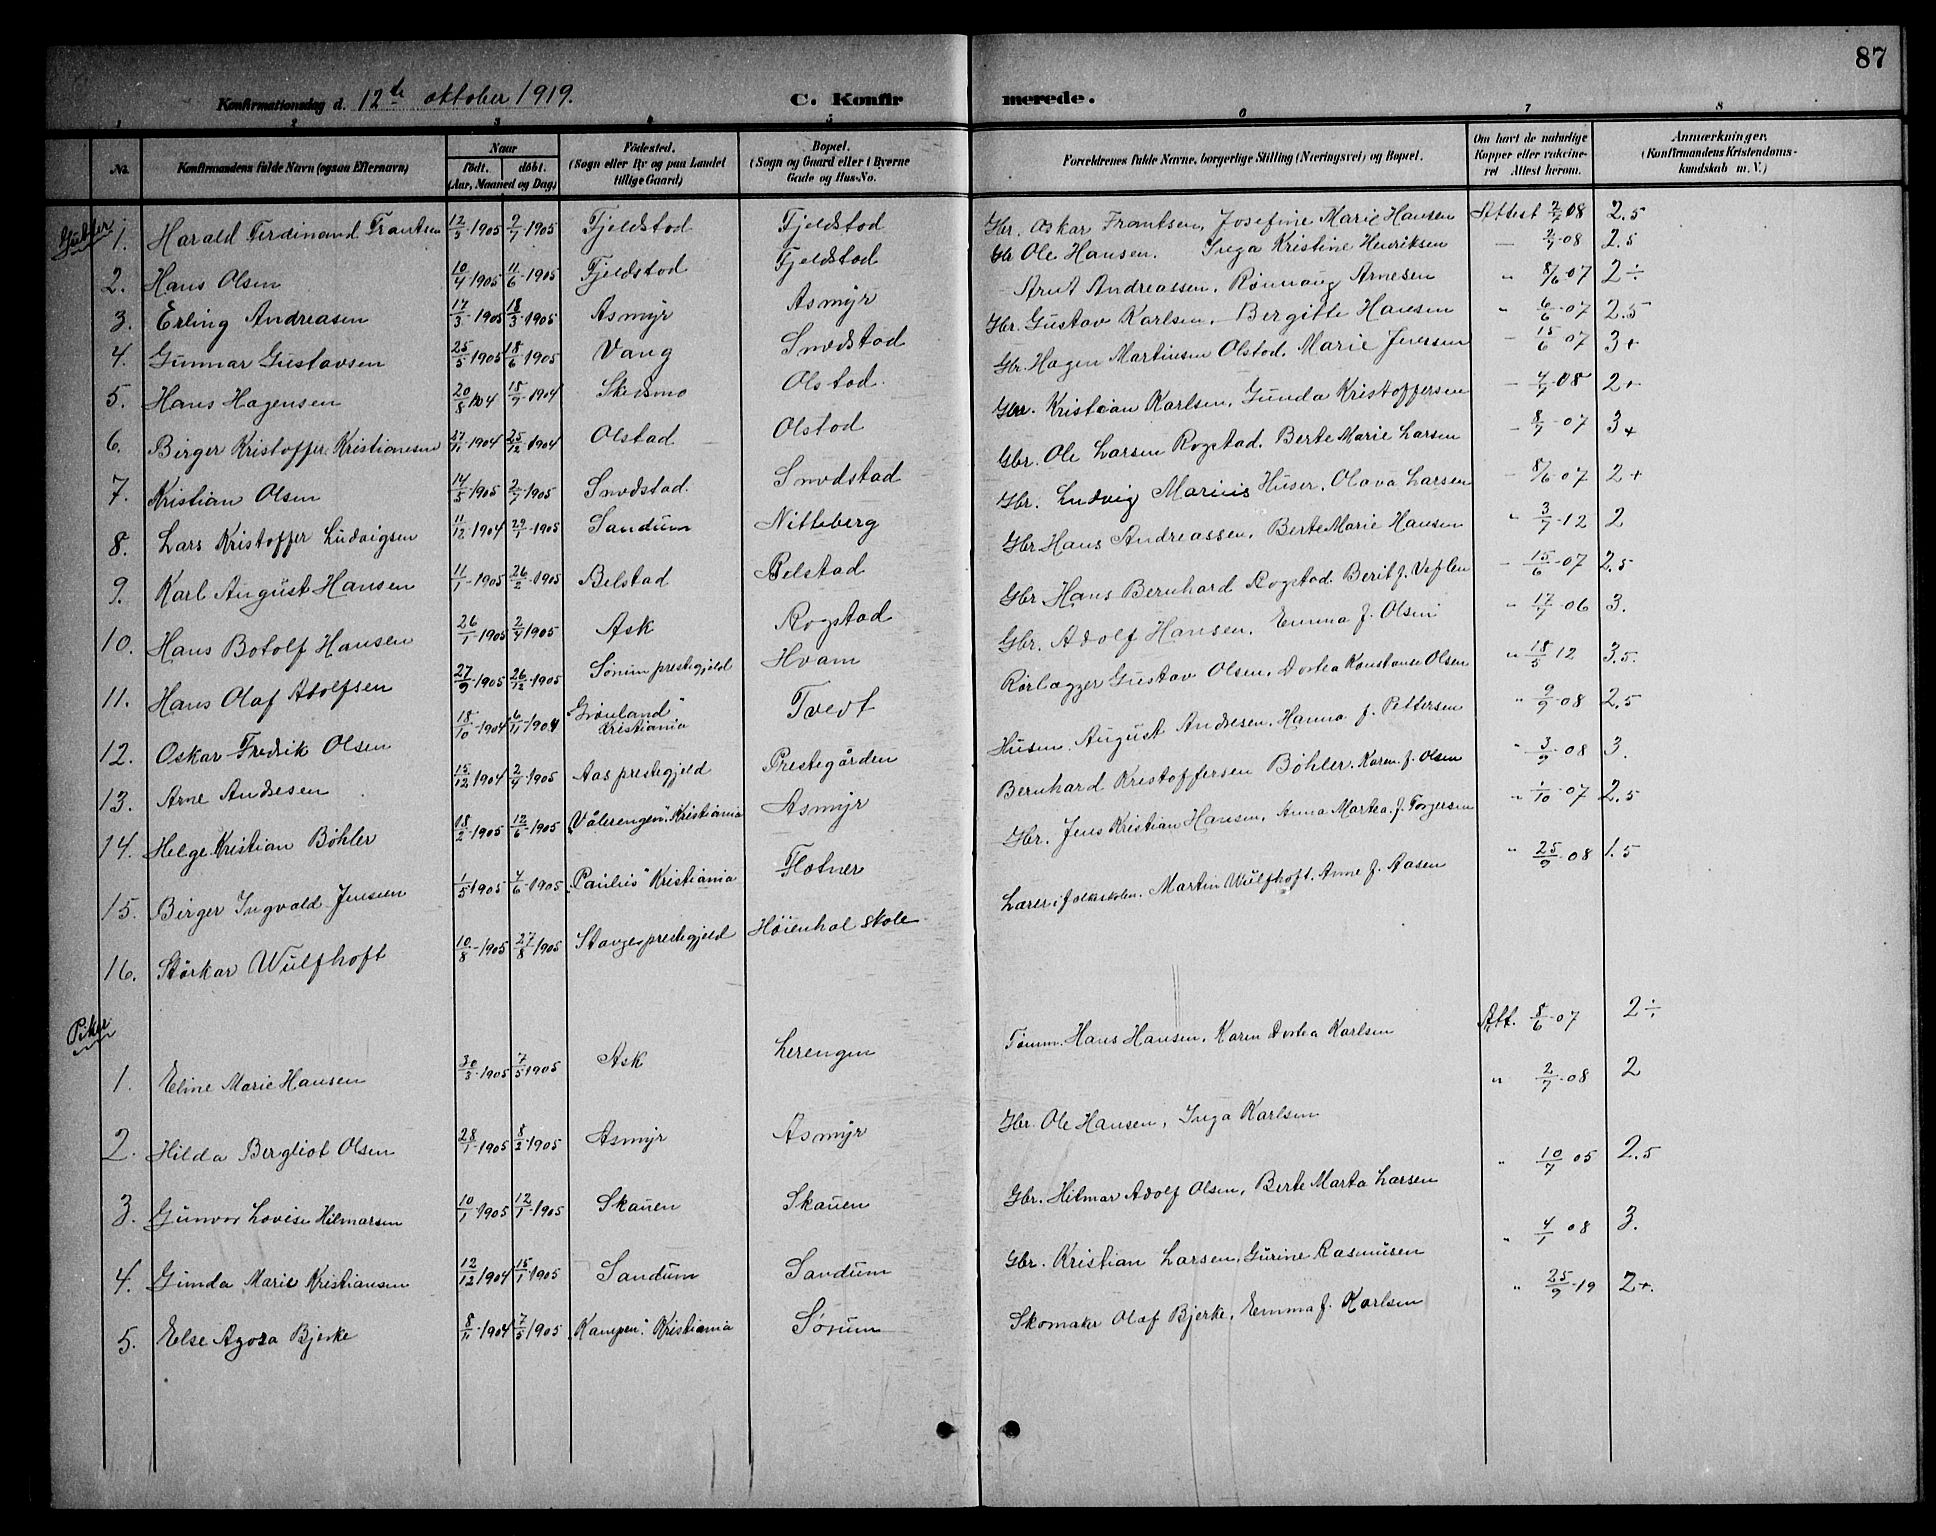 87
Konfirmationsdag d. 12te oktober 1919. C. Konfirmerede.
1 2 3 4 5 6 7 8
No. Konfirmandens fulde Navn (ogsaa Efternavn) Naar født. døbt. (Aar, Maaned og Dag) Fødested. (Sogn eller By og paa Landet tillige Gaard) Bopæl. (Sogn og Gaard eller i Byerne Gade og Hus-No. Forældrenes fulde Navne, borgerlige Stilling (Næringsvei) og Bopæl. Om havt de naturlige Kopper eller vakcineret Attest herom. Anmærkninger. (Konfirmandens Kristendomskundskab m. V.)
Gutter
1. Harald Ferdinand Frantsen 12/5 1905 2/7 1905 Fjeldstad Fjeldstad Gbr. Oskar Frantsen, Josefine Marie Hansen Attest 2/7 08 2.5
2. Hans Olsen 10/4 1905 11/6 1905 Fjeldstad Fjeldstad Gbr Ole Hansen. Inga Kristine Henriksen — 2/7 08 2.5
3. Erling Andreasen 17/3 1905 18/3 1905 Asmyr Asmyr Arnt Andreassen, Rønnaug Arnesen " 8/6 07 2÷
4. Gunnar Gustavsen 25/5 1905 18/6 1905 Vang Smedstad Gbr. Gustav Karlsen, Bergitte Hansen " 6/6 07 2.5
5. Hans Hagensen 20/8 1904 18/9 1904 Skedsmo Olstad. Gbr. Hagen Martinsen Olstad, Marie Jensen — 15/6 07 3+
6. Birger Kristoffer Kristiansen 27/11 1904 25/12 1904 Olstad Olstad Gbr. Kristian Karlsen, Gunda Kristoffersen — 4/7 08 2+
7. Kristian Olsen 14/5 1905 2/7 1905 Smedstad. Smedstad Gbr. Ole Larsen Rogstad. Berte Marie Larsen — 8/7 07 3+
8. Lars Kristoffer Ludvigsen 11/12 1904 29/1 1905 Sandum Nitteberg Gbr. Ludvig Marius Huser, Olava Larsen — 8/6 07 2+
9. Karl August Hansen 11/1 1905 26/2 1905 Belstad Belstad Gbr Hans Andreassen, Berte Marie Hansen " 3/7 12 2
10. Hans Botolf Hansen 26/1 1905 2/4 1905 Ask Rogstad Gbr Hans Bernhard Rogstad. Berit J. — 15/6 07 2.5
11. Hans Olaf Adolfsen 27/9 1905 26/12 1905 Sørum prestegjeld Hvam Gbr. Adolf Hansen, Emma J. Olsen " 17/7 06 3.
12. Oskar Fredrik Olsen 18/10 1904 6/11 1904 "Grønland" Kristiania Tvedt Rørlægger Gustav Olsen, Dortea Konstanse Olsen " 18/5 12 3.5.
13. Arne Andresen 15/12 1904 2/4 1905 Aas prestegjeld Prestegården Husm. August Andresen, Hanna J. Pettersen " 9/9 08 2.5
14. Helge Kristian Bøhler 18/2 1905 12/6 1905 "Vålerengen". Kristiania Asmyr Bernhard Kristoffersen Bøhler. Karen J. Olsen " 3/9 08 3.
15. Birger Ingvald Jensen 1/5 1905 4/6 1905 "Paulus" Kristiania Flotner Gbr. Jens Kristian Hansen, Anna Martea J. Torgersen " 1/10 07 2.5
16. Størkar Wulfhoft 10/8 1905 27/8 1905 Stange prestegjeld Høienhal skole Lærer i folkeskolen. Martin Wulfhoft, Anne J. Aasen " 25/9 08 1.5
Piker
1. Eline Marie Hansen 30/3 1905 7/5 1905 Ask Lerengen Tømm. Hans Hansen, Karen Dortea Karlsen Att. 8/6 07 2÷
2. Hilda Bergliot Olsen 28/1 1905 8/2 1905 Asmyr Asmyr Gbr. Ole Hansen, Inga Karlsen " 2/7 08 2
3. Gunvor Lovise Hilmarsen 10/1 1905 12/1 1905 Skauen Skauen Gbr. Hilmar Adolf Olsen, Berte Marta Larsen " 10/7 05 2.5
4. Gunda Marie Kristiansen 12/12 1904 15/1 1905 Sandum Sandum Gbr. Kristian Larsen, Gurine Rasmusen " 4/1 08 3.
5. Else Agora Bjerke 8/11 1904 7/5 1905 "Kampen". Kristiania Sørum Skomaker Olaf Bjerke, Emma J. Karlsen " 25/9 19 2+.